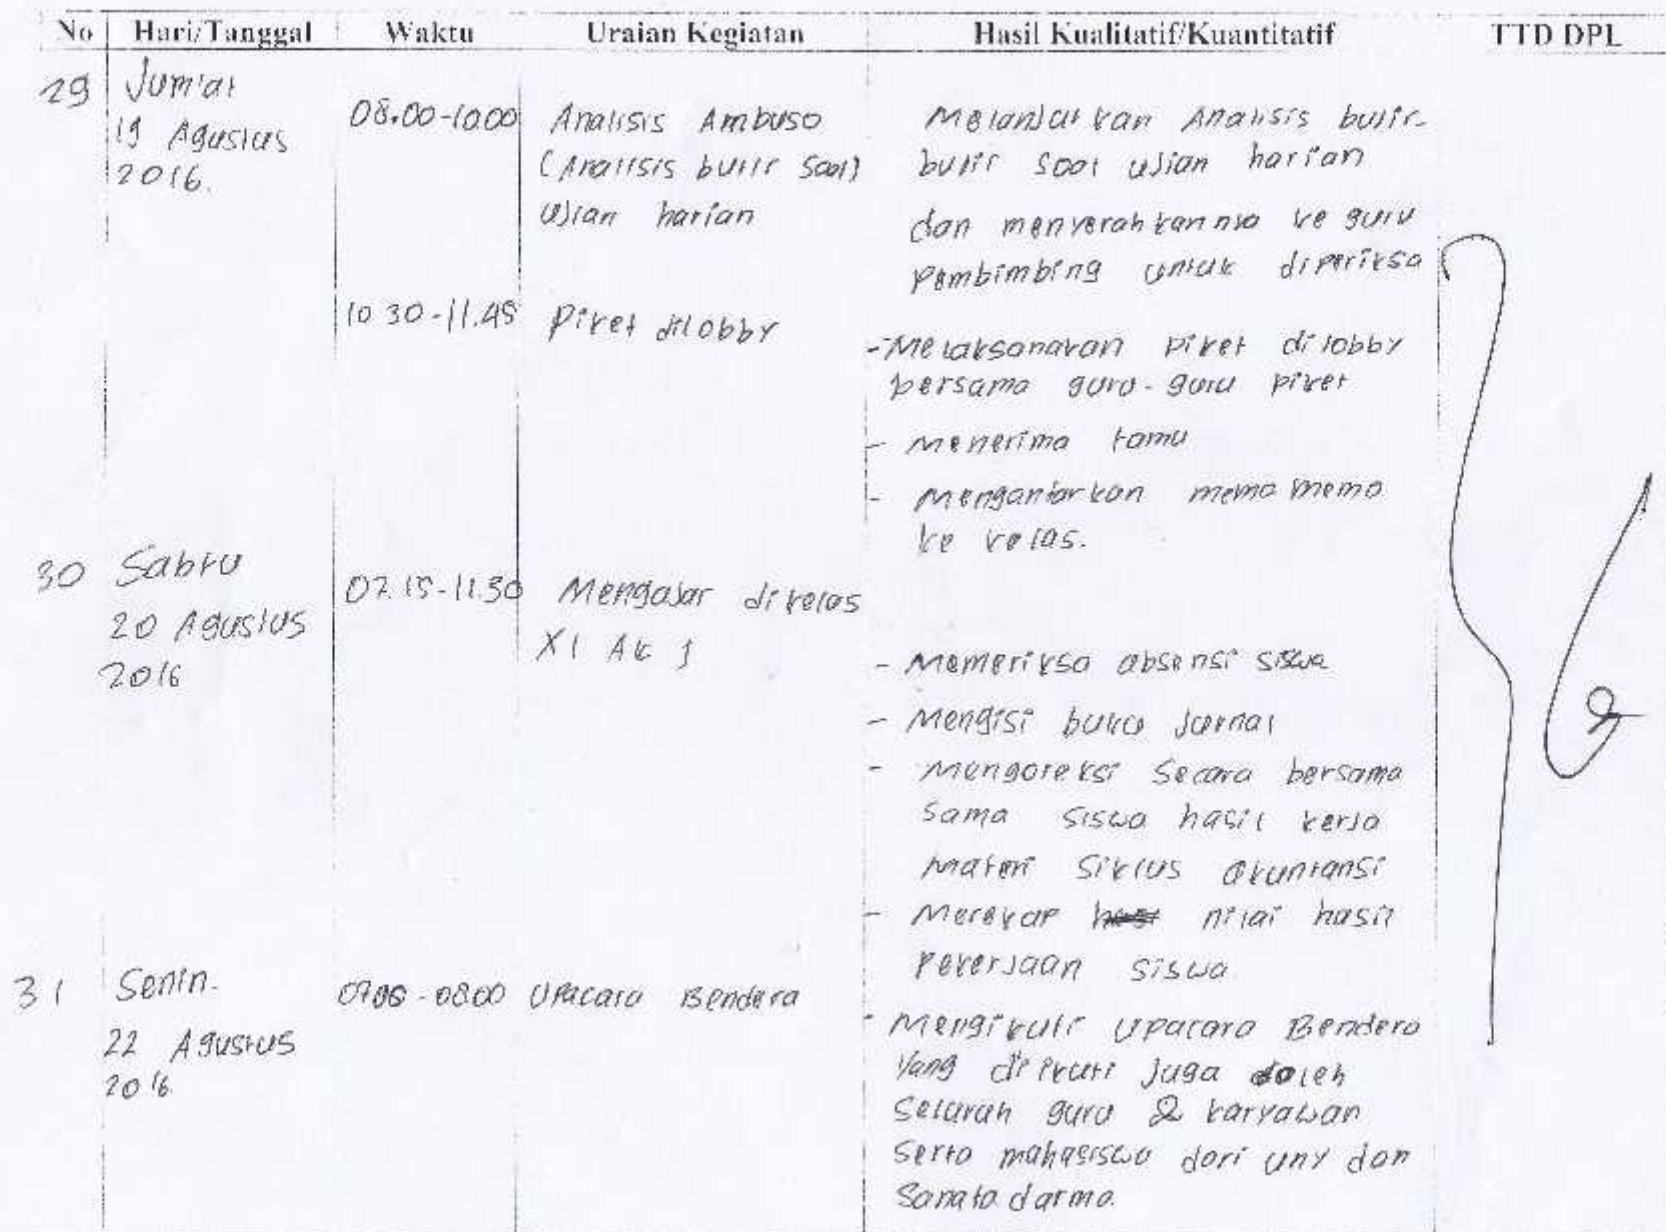 No Hari/Tanggal Waktu Uraian Kegiatan Hasil Kualitatif/Kuantitatif TTD DPL
29 Jum'at
19 Agustus
2016.
08.00-10.00
Analisis Ambuso
(Analisis butir soal)
ujian harian
Melanjutkan Analisis butir-
butir soal ujian harian
dan menyerahkannya ke guru
pembimbing untuk diperiksa
10.30-11.45
Piket dilobby
- Melaksanakan piket di lobby
bersama guru-guru piket
- Menerima tamu
- Mengantarkan memo memo
ke kelas.
30 Sabtu
20 Agustus
2016
07.15-11.30
Mengajar di kelas
XI AK 1
- Memeriksa absensi siswa
- Mengisi buku jurnal
- Mengoreksi secara bersama
sama siswa hasil kerja
materi siklus akuntansi
- Merekap nilai hasil
pekerjaan siswa
31 Senin.
22 Agustus
2016.
07.00-08.00
Upacara Bendera
- Mengikuti upacara Bendera
yang diikuti juga oleh
seluruh guru & karyawan
serta mahasiswa dari uny dan
Sanata darma.